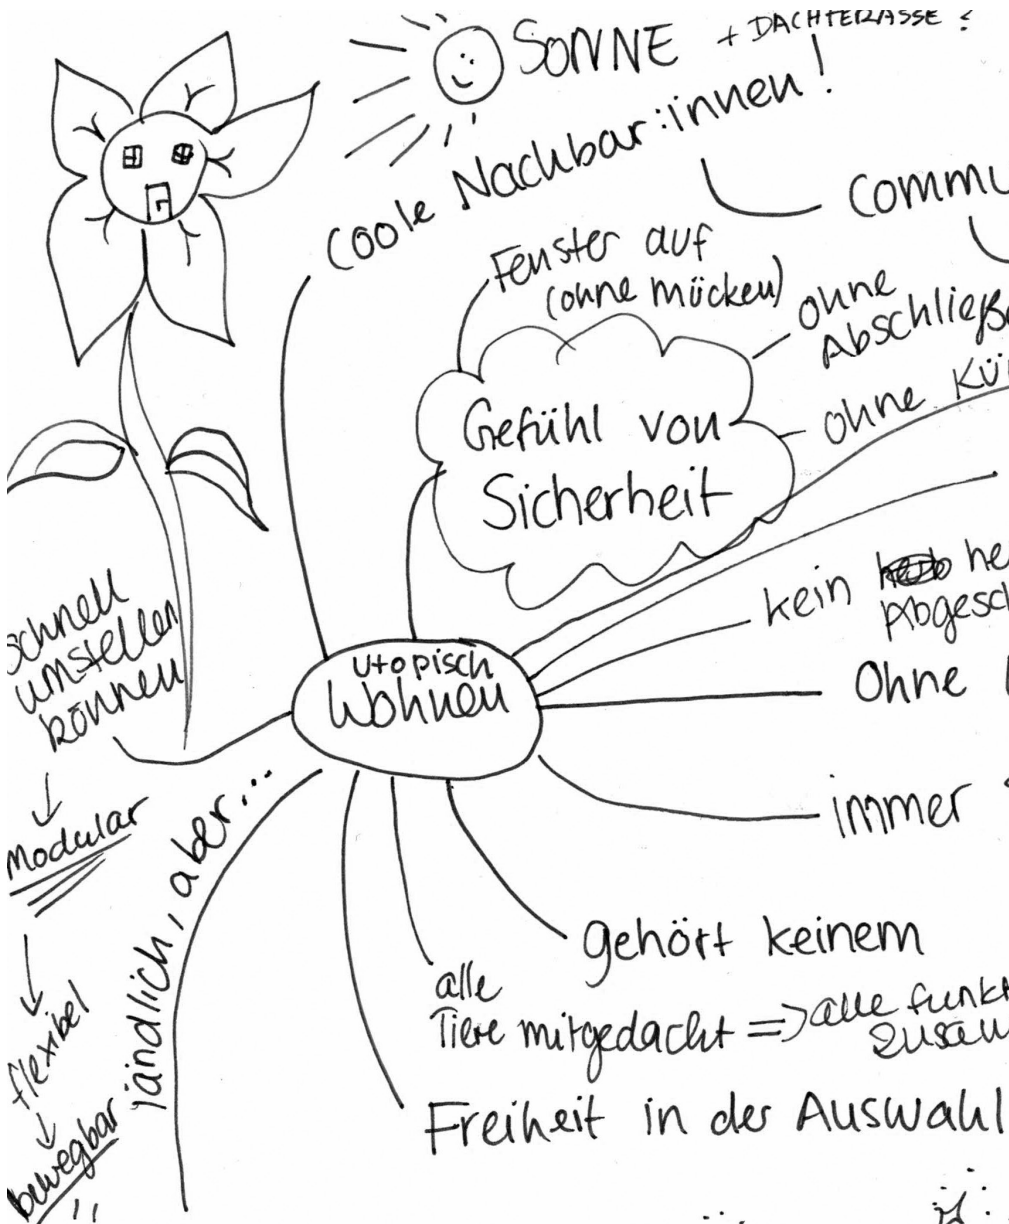 SONNE + DACHTERASSE ?
coole Nachbar:innen!
Commu
Fenster auf
(ohne Mücken)
ohne
Abschließe
ohne Kü
Gefühl von
Sicherheit
kein he
Abgesch
Ohne
immer
utopisch
Wohnen
schnell
umstellen
können
Modular
flexibel
bewegbar
ländlich, aber...
gehört keinem
alle
Tiere mitgedacht => alle funkt
zusam
Freiheit in der Auswahl